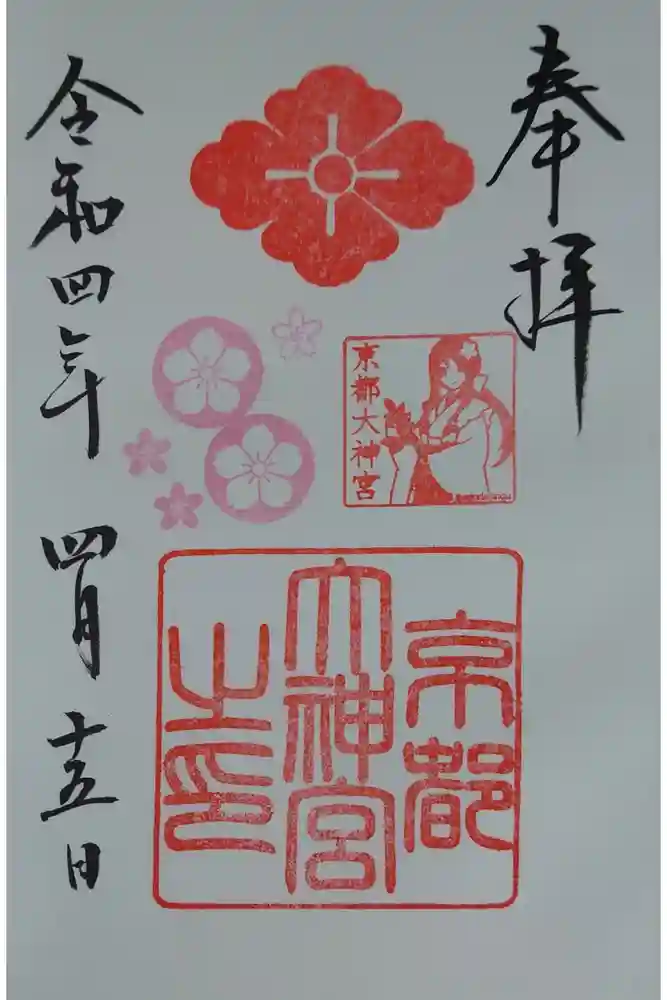 奉拝
京都大神宮
京都
大神宮
之印
令和四年 四月十五日